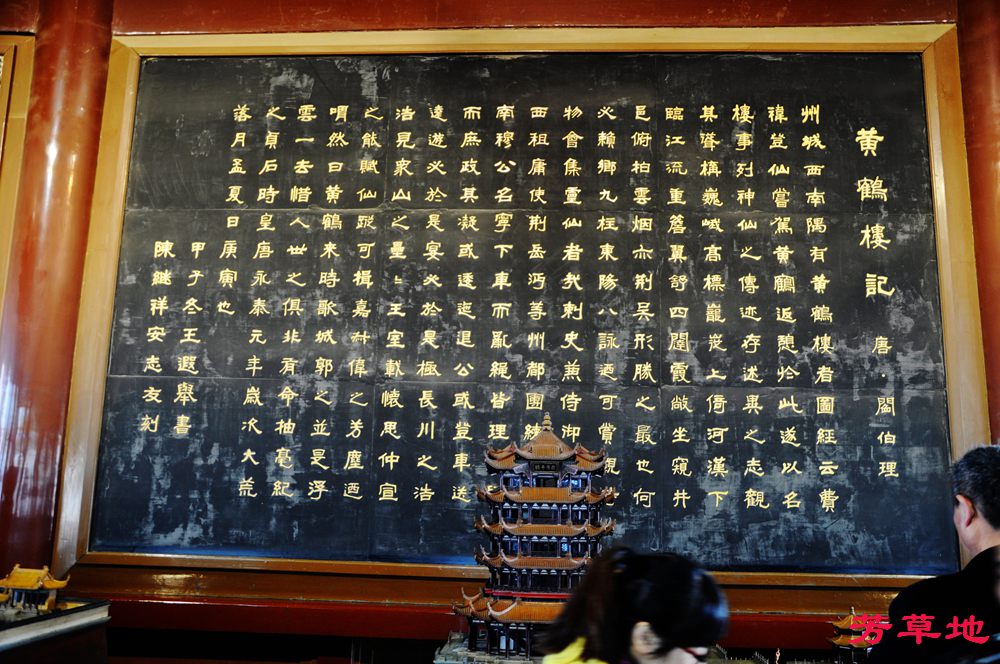 黄鶴樓記 唐·閻伯理
州城西南隅有黄鶴樓者圖経云費
禕登仙嘗駕黄鶴返憩於此遂以名
樓事列神仙之傳迹存述異之志觀
其聳構巍峨高標巃嵸上倚河漢下
臨江流重簷翼舒四闥霞敞坐窺井
邑俯拍雲烟亦荆吴形勝之最也何
必賴鄉九柱東陽八詠迺可賞觀
物會集靈仙者哉刺史兼侍御
西租庸使荆岳沔等州都團練
南穆公名寧下車而亂繩皆理
而庶政其凝或逶迤退公或登車送
遠遊必於是宴必於是極長川之浩
浩見衆山之壘〻王室載懷思仲宣
之能賦仙蹤可揖嘉叔偉之芳塵迺
喟然曰黄鶴來時歌城郭之並是浮
雲一去惜人世之俱非有命抽毫紀
之貞石時皇唐永泰元年歲次大荒
落月孟夏日庚寅也
甲子冬王遐舉書
陳継祥安志友刻
芳草地